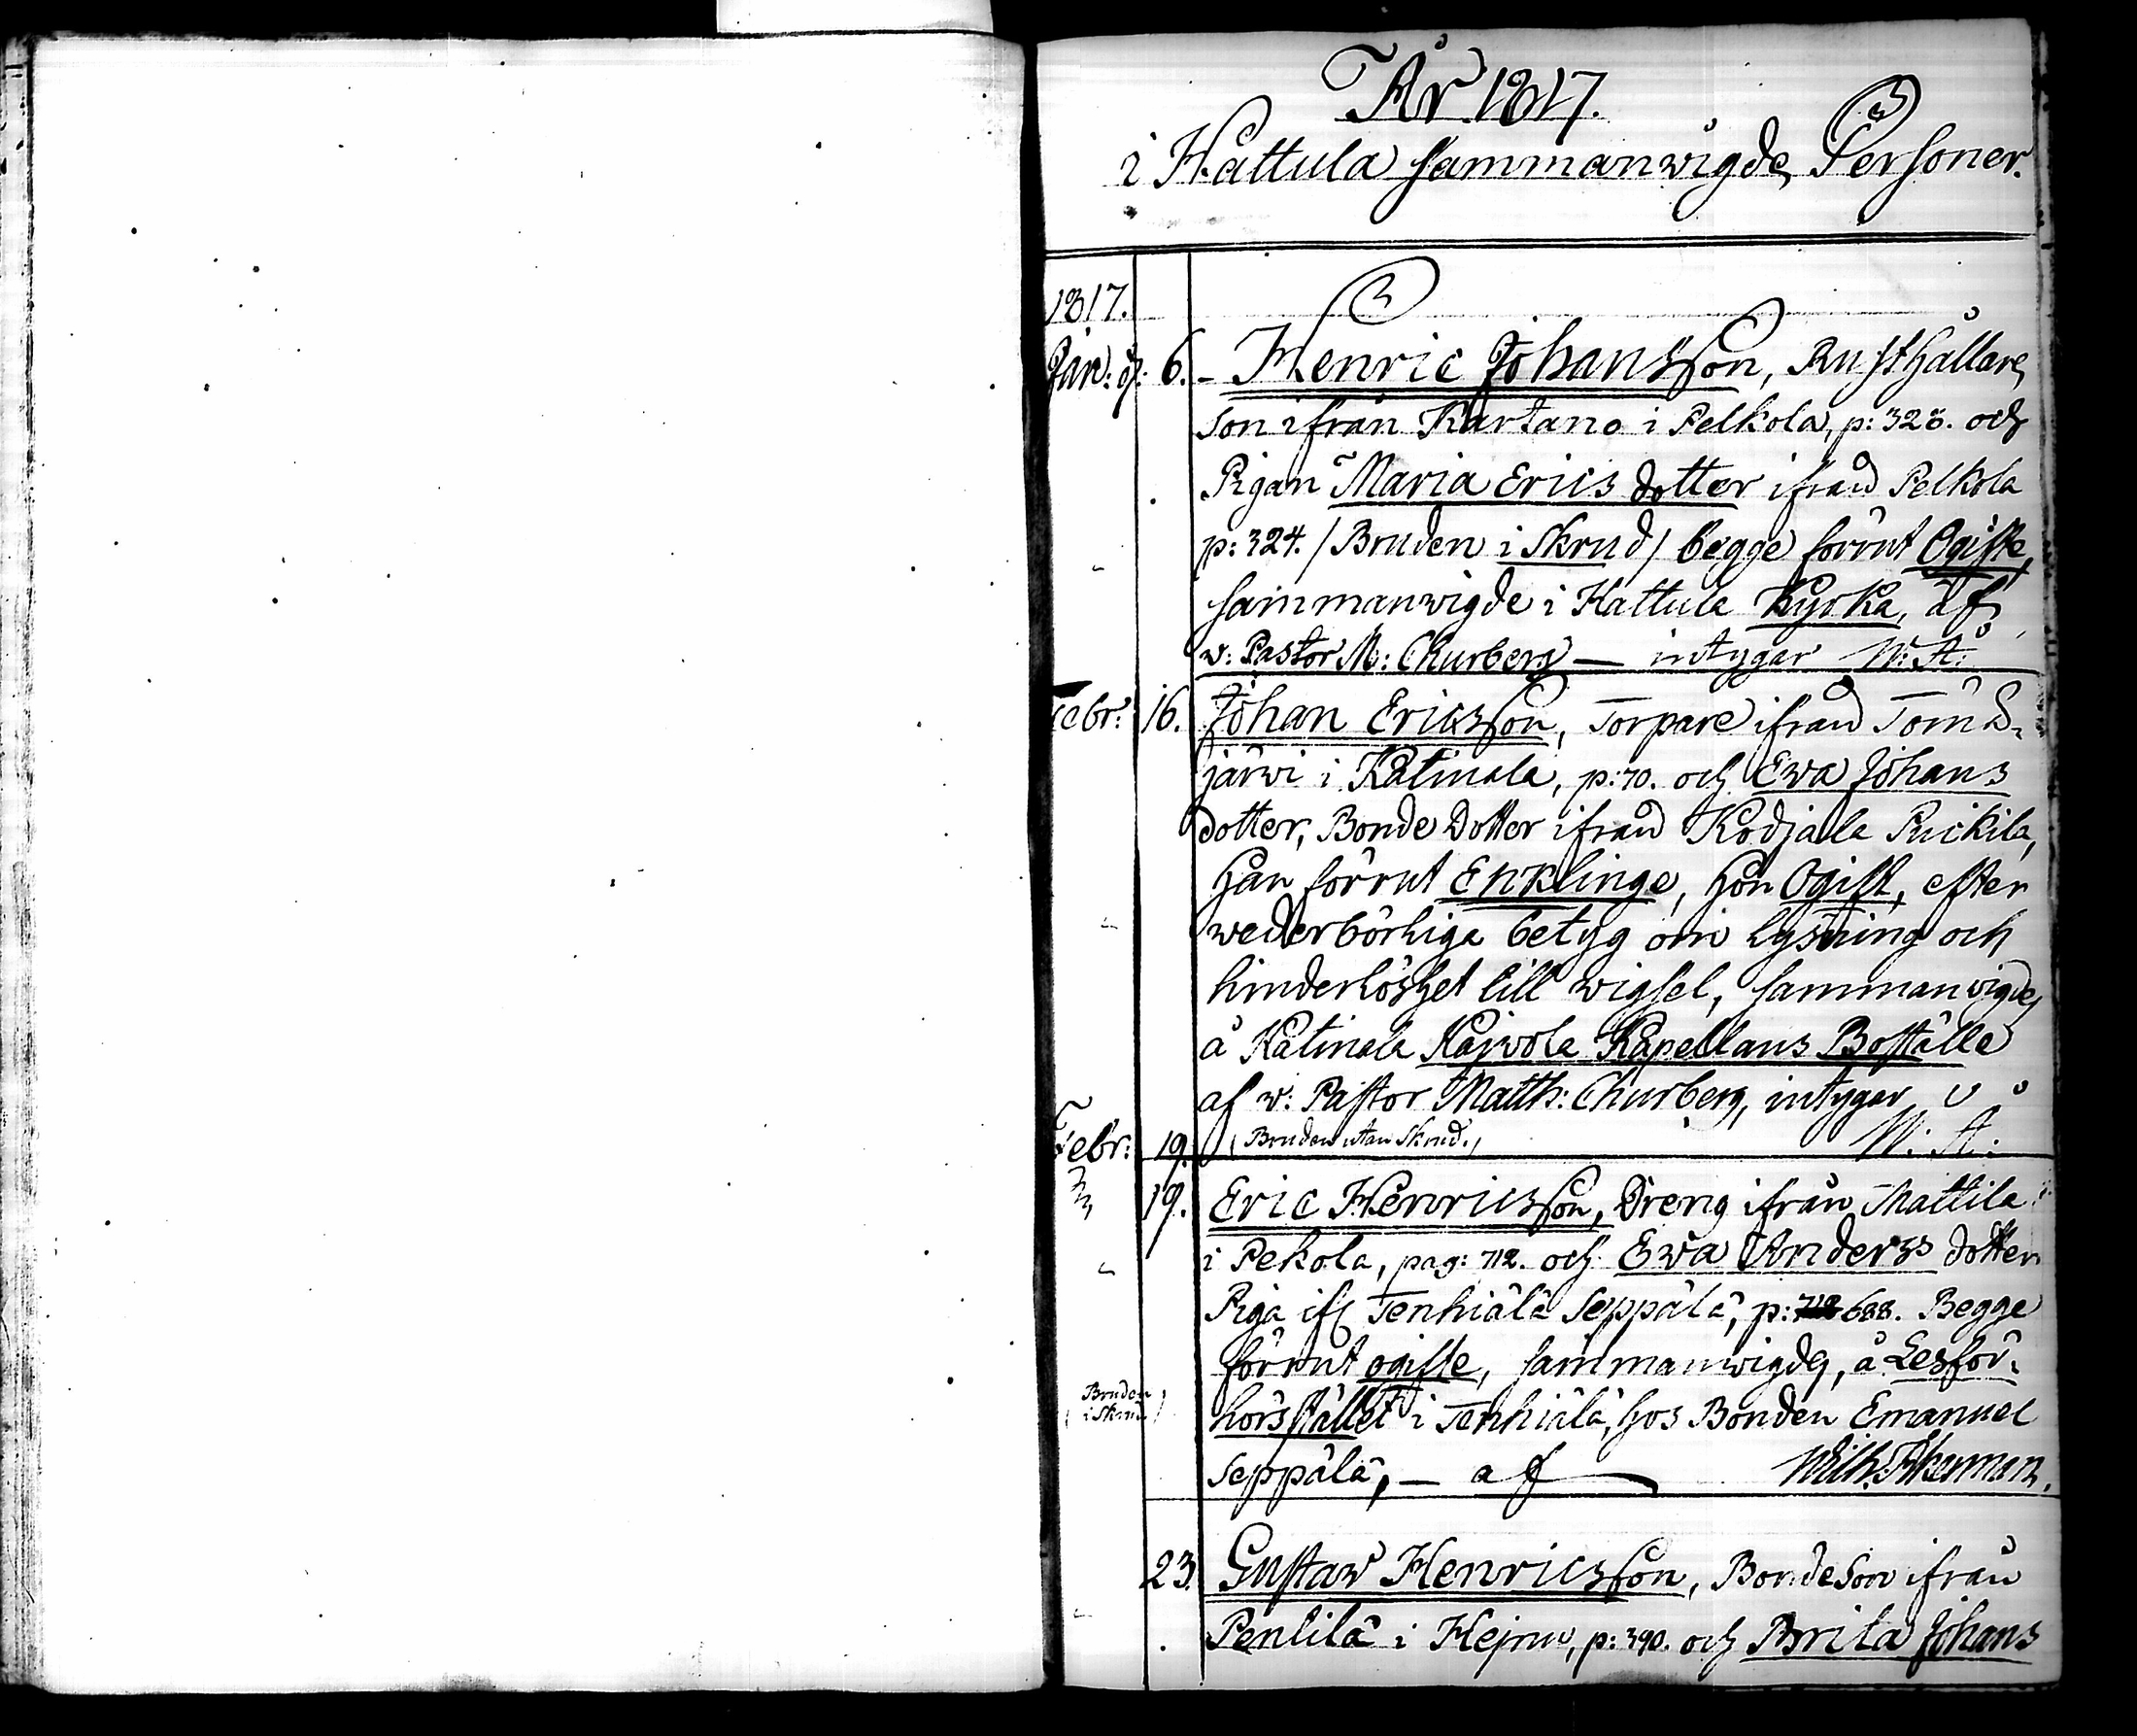 År 1817.
i Hattula sammanwigde Personer.
1817.
Jan: 6. - Henric Johansson, Rusthållare
son ifrån Kartano i Pelkola, p: 328. och
Pigan Maria Ericsdotter ifrån Pelkola
p: 324. / Bruden i Skrud / begge förrut Ogifte,
sammanwigde i Hattula Kyrka, af
v: Pastor M: Churberg — intygar W: Å:
Febr: 16. Johan Ericsson, Torpare ifrån
järwi i Katinala, p: 70. och Ewa Johans
dotter, Bonde Dotter ifrån Kodjala Puickila,
Han förrut Enklinge, hon Ogift, efter
wederbörliga betyg om lysning och
hinderlöshet till wigsel, sammanwigde
å Katinala Kapellans Boställe
af v: Pastor Matth: Churberg, intygar
Febr: 19. (Bruden utan Skrud.) W: Å:
19. Eric Henricsson, Dreng ifrån Mattila
i Pekola, pag: 712. och Ewa Anders dotter
Piga ifr Tenhiälä Seppälä, p: 688. Begge
förrut ogifte, sammanwigde, å Lesför-
(Bruden
i Skrud)
horsstället i Tenhiälä, hos Bonden Emanuel
Seppälä, — af Wilh. Åkerman.
23. Gustaw Henricsson, Bondeson ifrån
Pentilä i Hejnu, p: 390. och Brita Johans